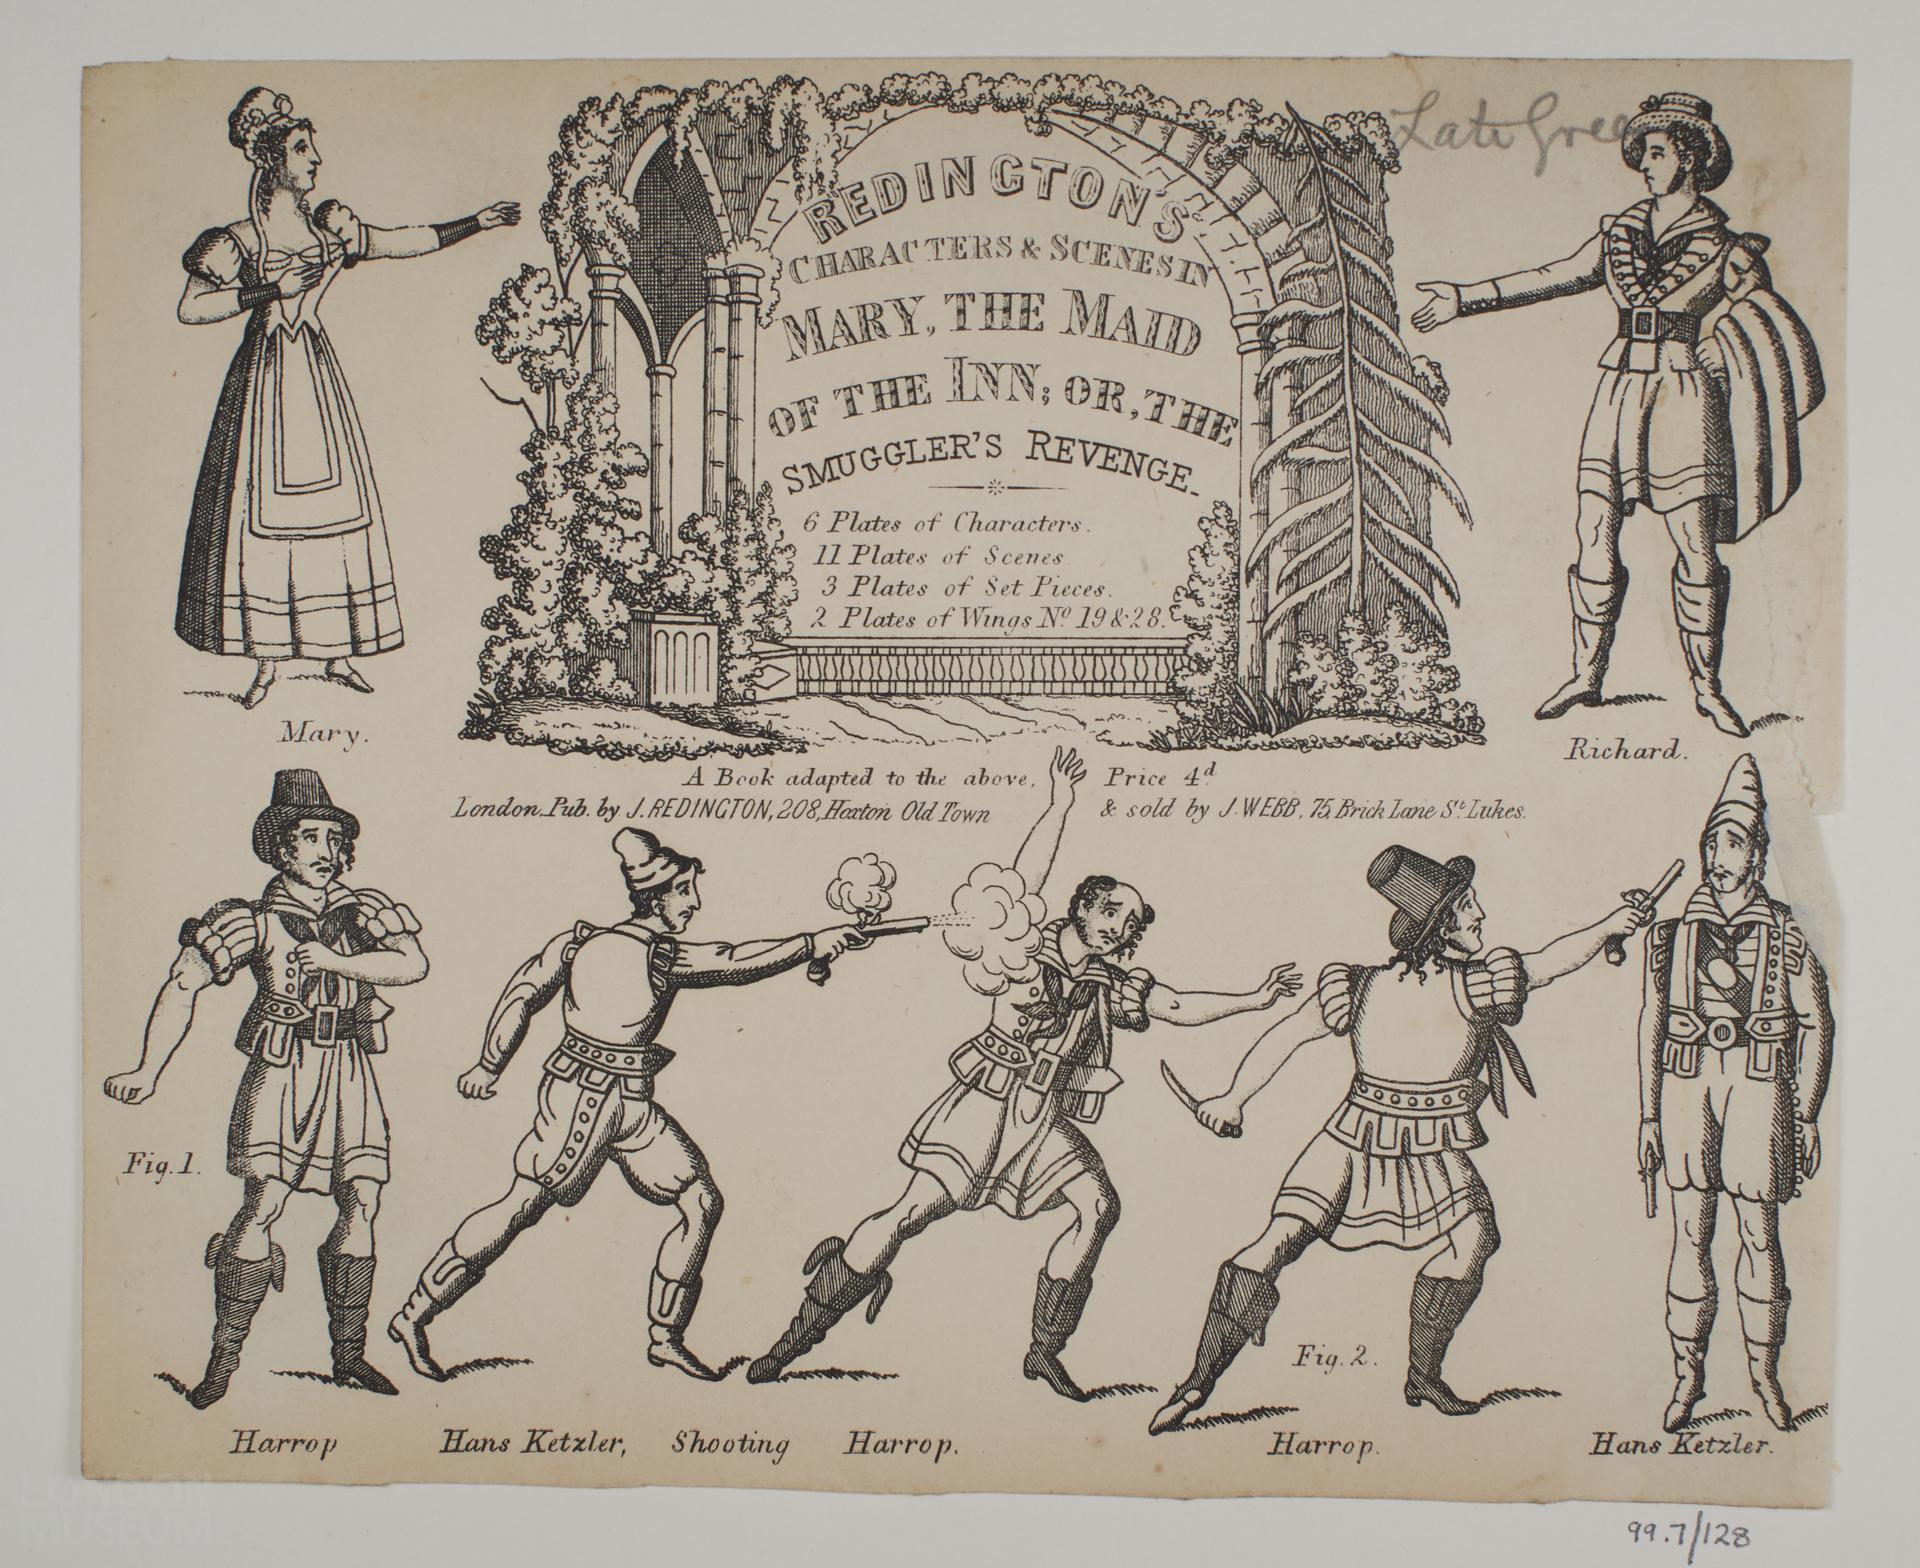 Late Green
REDINGTON'S
CHARACTERS & SCENES IN
MARY, THE MAID
OF THE INN; OR, THE
SMUGGLER'S REVENGE.
6 Plates of Characters.
11 Plates of Scenes
3 Plates of Set Pieces.
2 Plates of Wings No 19 & 28.
Mary.
Richard.
A Book adapted to the above, Price 4d.
London, Pub. by J. REDINGTON, 208, Hoxton Old Town & sold by J. WEBB, 75, Brick Lane St. Lukes.
Fig. 1.
Fig. 2.
Harrop
Hans Ketzler, Shooting Harrop.
Harrop.
Hans Ketzler.
LONDON
MUSEUM
99.7/128